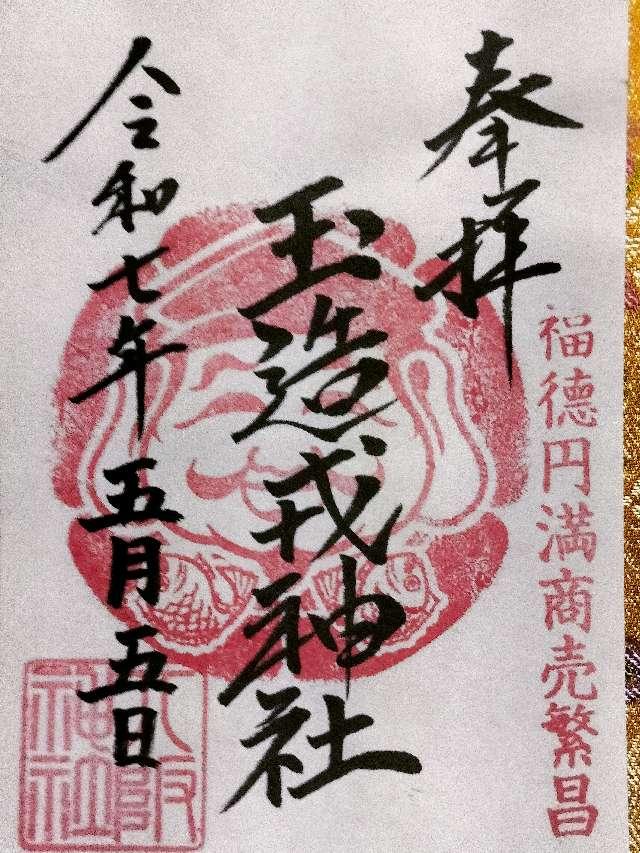 福徳円満商売繁昌
奉拝
玉造戎神社
令和七年五月五日